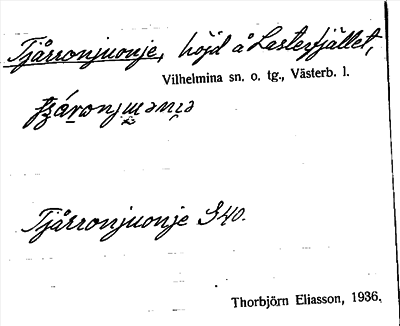 Tjårronjuonje, höjd å Lasterfjället,
Vilhelmina sn. o. tg., Västerb. l.
Tjårronjuonje S 40.
Thorbjörn Eliasson, 1936.